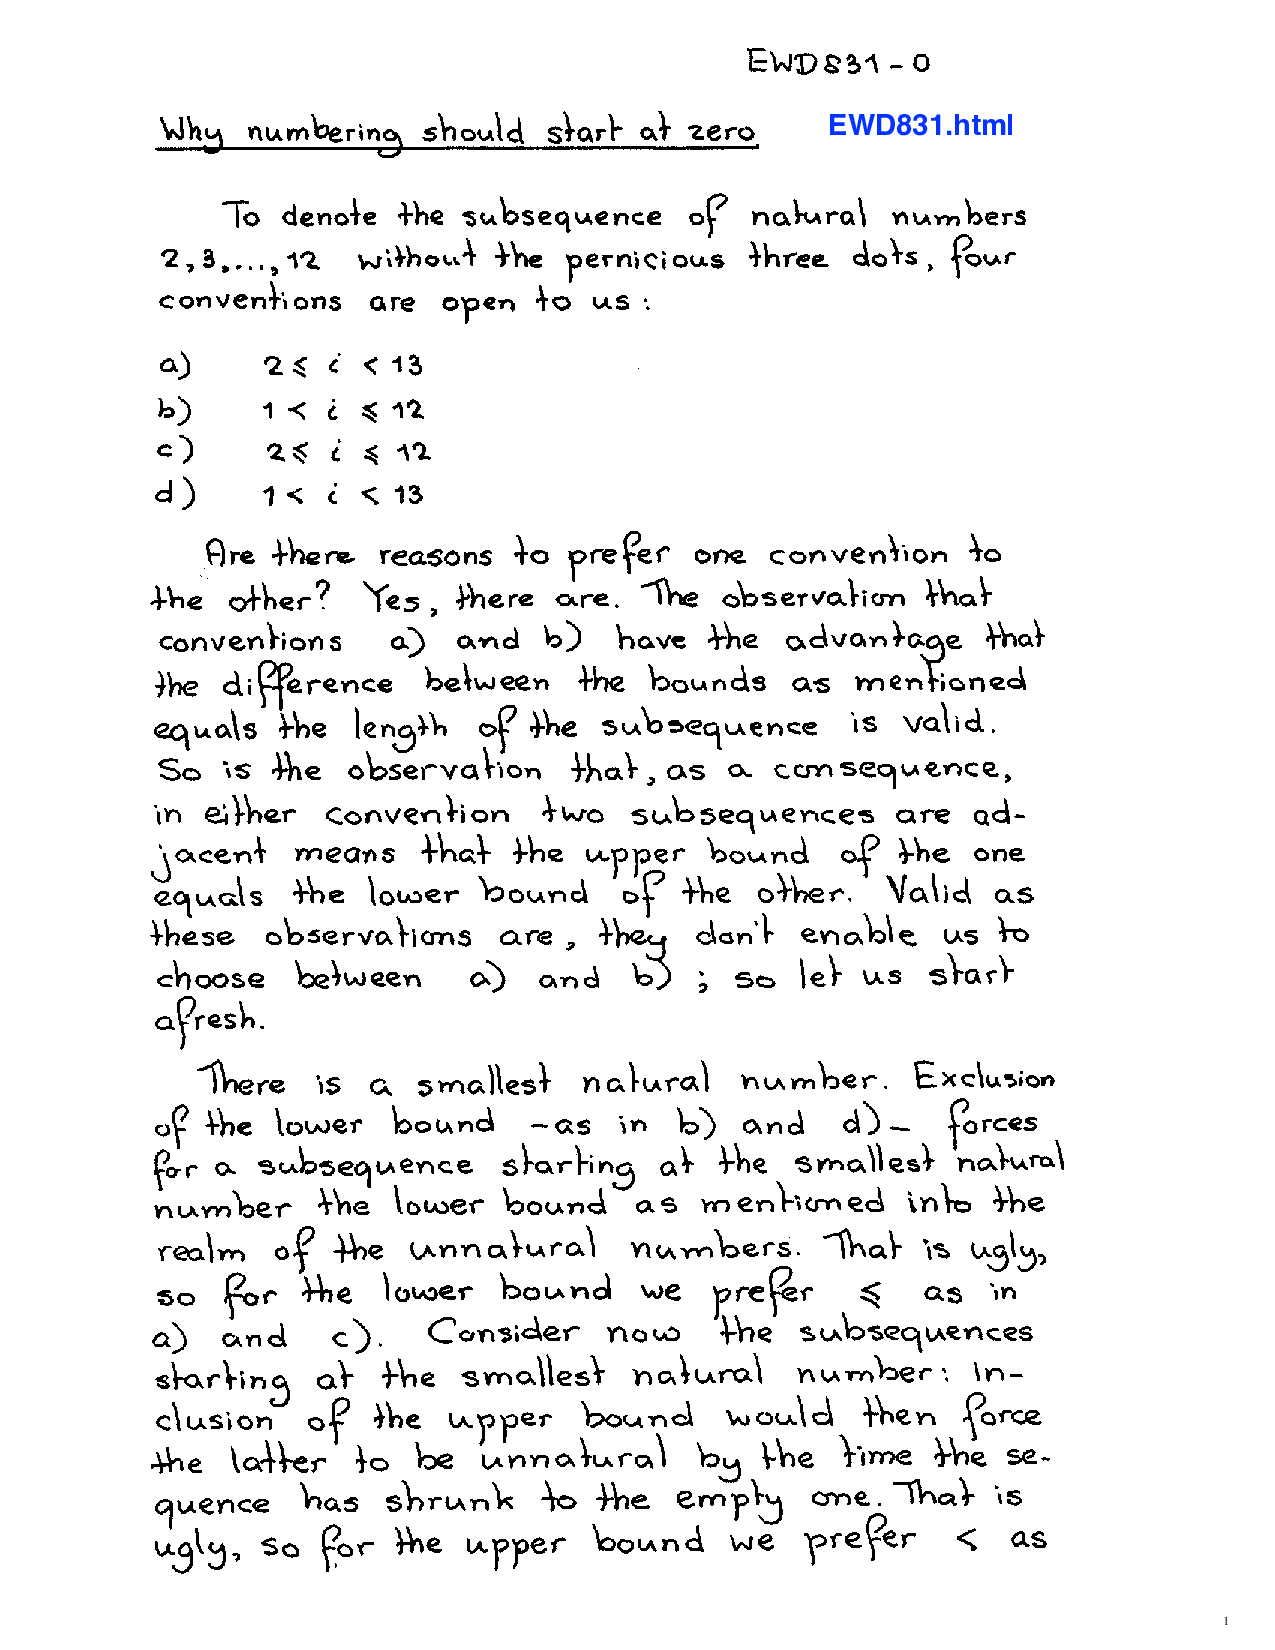 EWD831 - 0
Why numbering should start at zero
EWD831.html
To denote the subsequence of natural numbers
2, 3, ..., 12 without the pernicious three dots, four
conventions are open to us :
a) 2 ≤ i < 13
b) 1 < i ≤ 12
c) 2 ≤ i ≤ 12
d) 1 < i < 13
Are there reasons to prefer one convention to
the other? Yes, there are. The observation that
conventions a) and b) have the advantage that
the difference between the bounds as mentioned
equals the length of the subsequence is valid.
So is the observation that, as a consequence,
in either convention two subsequences are ad-
jacent means that the upper bound of the one
equals the lower bound of the other. Valid as
these observations are, they don't enable us to
choose between a) and b) ; so let us start
afresh.
There is a smallest natural number. Exclusion
of the lower bound -as in b) and d)- forces
for a subsequence starting at the smallest natural
number the lower bound as mentioned into the
realm of the unnatural numbers. That is ugly,
so for the lower bound we prefer ≤ as in
a) and c). Consider now the subsequences
starting at the smallest natural number: in-
clusion of the upper bound would then force
the latter to be unnatural by the time the se-
quence has shrunk to the empty one. That is
ugly, so for the upper bound we prefer < as
1